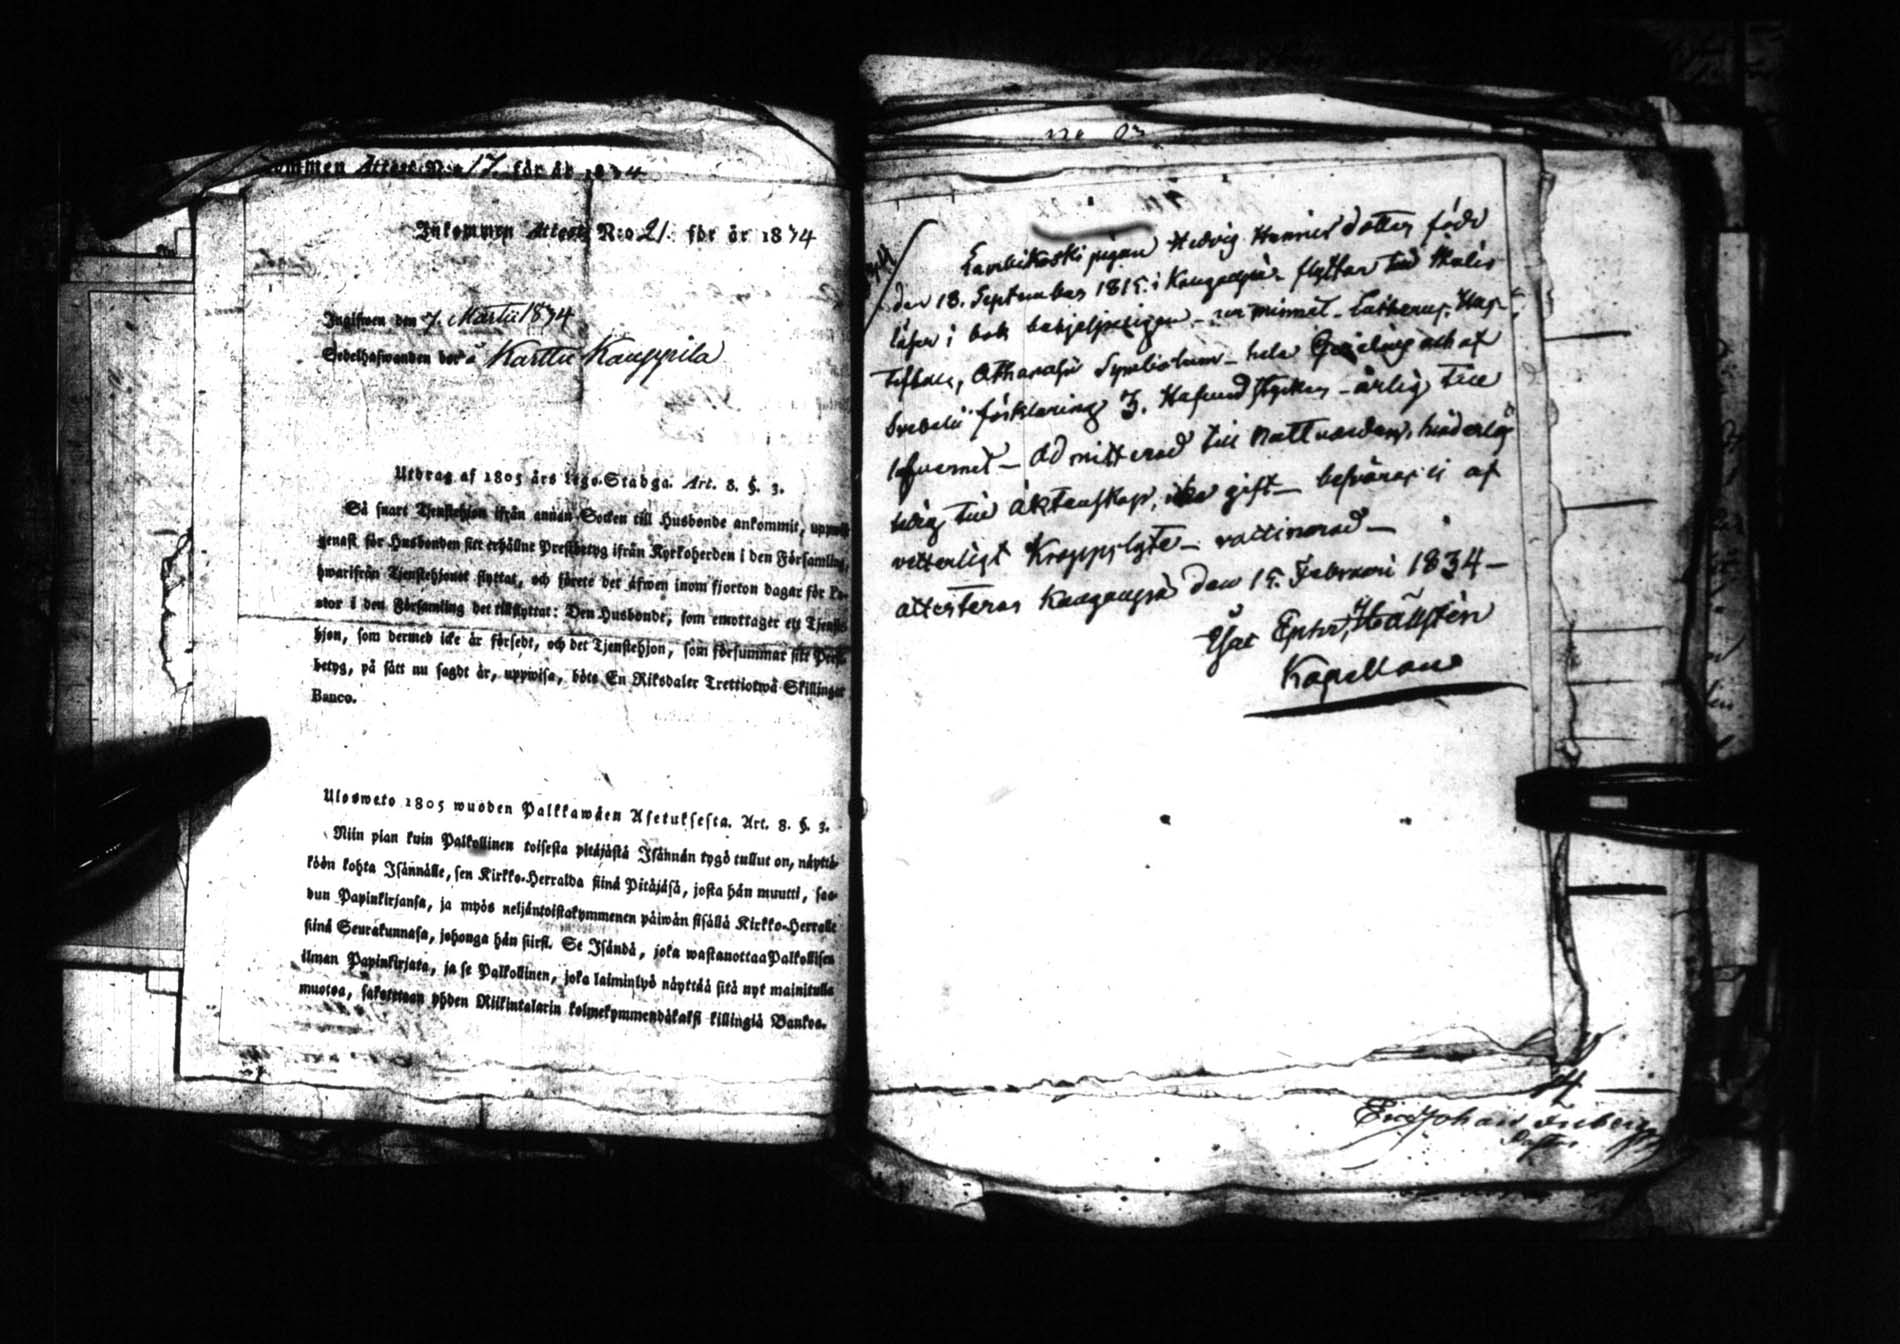 ommen Attest N:o 17. för år 1834
Inkommen Attest N:o 21. för år 1834
Ingifwen den 7. Martii 1834
Sedelhafwanden bor å Karttu Kauppila
Utdrag af 1805 års Lego-Stadga. Art. 8. §. 3.
Så snart Tjenstehjon ifrån annan Socken till Husbonde ankommit, uppwi
genast för Husbonden sitt erhållne Prestbetyg ifrån Kyrkoherden i den Församling,
hwarifrån Tjenstehjonet flyttat, och förete det äfwen inom fjorton dagar för Pa-
stor i den Församling det tillflyttat: Den Husbonde, som emottager ett Tjenste-
hjon, som dermed icke är försedt, och det Tjenstehjon, som försummar sitt Prest-
betyg, på sätt nu sagdt är, uppwisa, böte En Riksdaler Trettiotwå Skillingar
Banco.
Ulosweto 1805 wuoden Palkkawäen Asetuksesta. Art. 8. §. 3.
Niin pian kuin Palkollinen toisesta pitäjästä Isännän tygö tullut on, näyttä-
köön kohta Isännälle, sen Kirkko-Herralda siinä Pitäjäsä, josta hän muutti, saa-
dun Papinkirjansa, ja myös neljäntoistakymmenen päiwän sisällä Kirkko-Herralle
siinä Seurakunnasa, johonga hän siirsi. Se Isändä, joka wastanottaa Palkollisen
ilman Papinkirjata, ja se Palkollinen, joka laiminlyö näyttää sitä nyt mainitulla
muotoa, sakotetaan yhden Riikintalarin kolmekymmendäkaksi killingiä Bankoa.
pigan Hedvig Henricsdotter född
den 18. September 1815. i Kangasala flyttar till Ikalis
läser i bok - ur minnet - Catheches, Hus-
taflan, Athanasii Symbolum - hela och af
Svebelii förklaring 3. Hufvud stycken - ärlig till
lefvernet - Admitterad till Nattvarden, hinderlös
ledig till Äktenskap, icke gift - besväras ej af
vetterligt Kroppslyte - vaccinerad -
attesteras Kangasala den 15. Februari 1834 -
Hällsten
Kapellan
Johan
Pastor